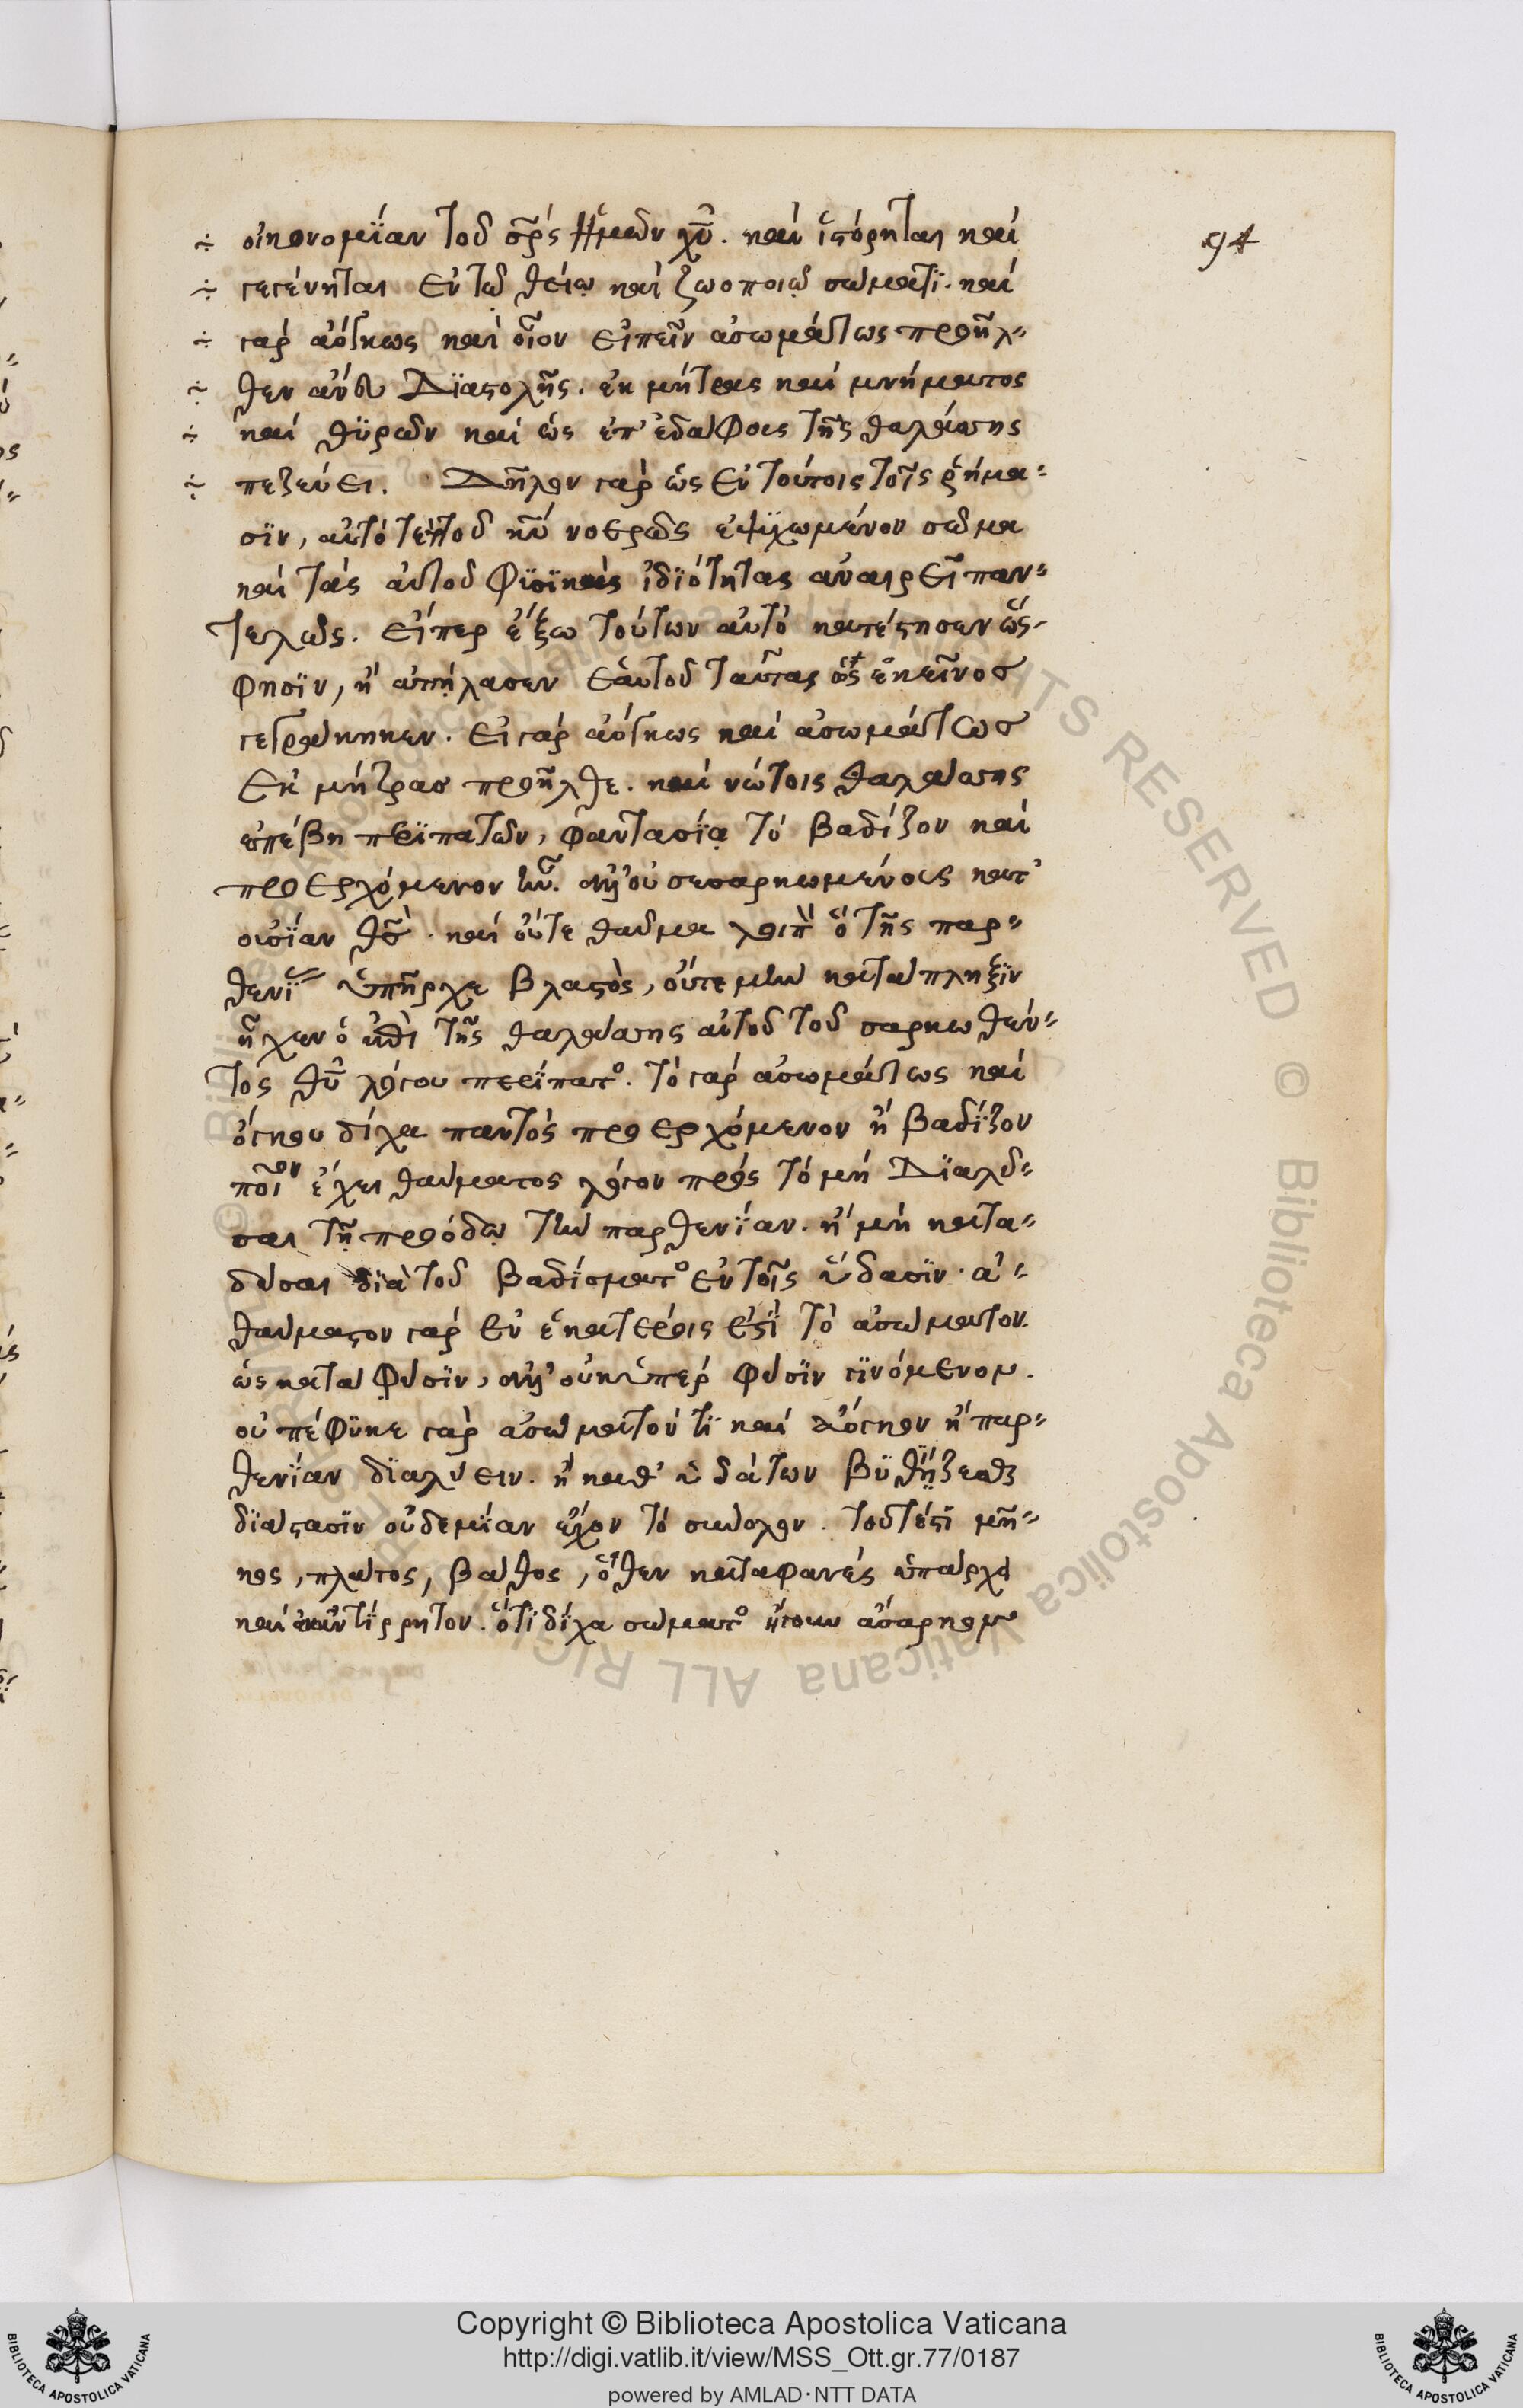 οἰκονομΐαν τοῦ σρ̅ς ἡμῶν χυ̅. καὶ ἱστόρηται καὶ
γεγένηται ἐν τῷ θείῳ καὶ ζωοποιῷ σώματϊ. καὶ
γὰρ ἀόγκως καὶ οἷον εἰπεῖν ἀσωμάτως προῆλ-
θεν ἄνευ Διαστολῆς. ἐκ μήτρας καὶ μνήματος
καὶ θϋρῶν καὶ ὡς ἐπ' ἐδάφους τῆς θαλάσσης
πεζεύει. Δῆλον γὰρ ὡς ἐν τούτοις τοῖς ῥήμα-
σϊν, αὐτό τε τοῦ κυ̅ νοερῶς ἐψϋχωμένον σῶμα
καὶ τὰς αὐτοῦ φϋσϊκὰς ἰδϊότητας ἀναιρεῖ παν-
τελῶς. εἴπερ ἔξω τούτων αὐτὸ κατέστησεν ὥς
φησϊν, ἢ ἀπήλασεν ἑαυτοῦ ταύτας ὡς ἐκεῖνοσ
γέγραφηκεν. εἰ γὰρ ἀόγκως καὶ ἀσωμάτωσ
ἐκ μήτρασ προῆλθε. καὶ νώτοις θαλάσσης
ἐπέβη περϊπατῶν, φαντασΐα τὸ βαδίζον καὶ
προερχόμενον ἦν. ἀλλ' οὐ σεσαρκωμένος κατ'
οὐσΐαν θσ̅. καὶ οὔτε θαῦμα λοιπὸν ὁ τῆς παρ-
θενΐας ὑπῆρχε βλαστὸς, οὔτε μὴν κατάπληξϊν
ἦχεν ὁ ἐπὶ τῆς θαλάσσης αὐτοῦ τοῦ σαρκωθέν-
τος θυ̅ λόγου περΐπατο. τὸ γὰρ ἀσωμάτως καὶ
ὄγκου δίχα παντὸς προερχόμενον ἢ βαδΐζον
ποῖον ἔχει θαύματος λόγον πρὸς τὸ μὴ Διαλῦ-
σαι τῇ προόδῳ τὴν παρθενΐαν. ἢ μὴ κατα-
δῦσαι δϊὰ τοῦ βαδίσματο ἐν τοῖς ὕδασϊν. ἀ-
θαύμαστον γὰρ ἐν ἑκατέροις ἐστὶ τὸ ἀσώματον.
ὡς κατὰ φύσϊν, ἀλλ' οὐκ ὑπὲρ φύσϊν γϊνόμενομ.
οὐ πέφϋκε γὰρ ἀσώματόν τϊ καὶ ἄογκον ἢ παρ-
θενΐαν δϊαλύειν. ἢ καθ' ὑδάτων βϋθΐζεσθαι
δϊάστασϊν οὐδεμΐαν ἔχον τὸ σύνολον. τουτέστϊ μῆ-
κος, πλάτος, βάθος, ὅθεν καταφανὲς ὑπάρχει
καὶ ἀναντΐρρητον. ὅτϊ δΐχα σώματο ἤγουν ἄσαρκομ
94
Copyright © Biblioteca Apostolica Vaticana
http://digi.vatlib.it/view/MSS_Ott.gr.77/0187
powered by AMLAD·NTT DATA
BIBLIOTECA APOSTOLICA VATICANA
BIBLIOTECA APOSTOLICA VATICANA
© Biblioteca Apostolica Vaticana ALL RIGHTS RESERVED